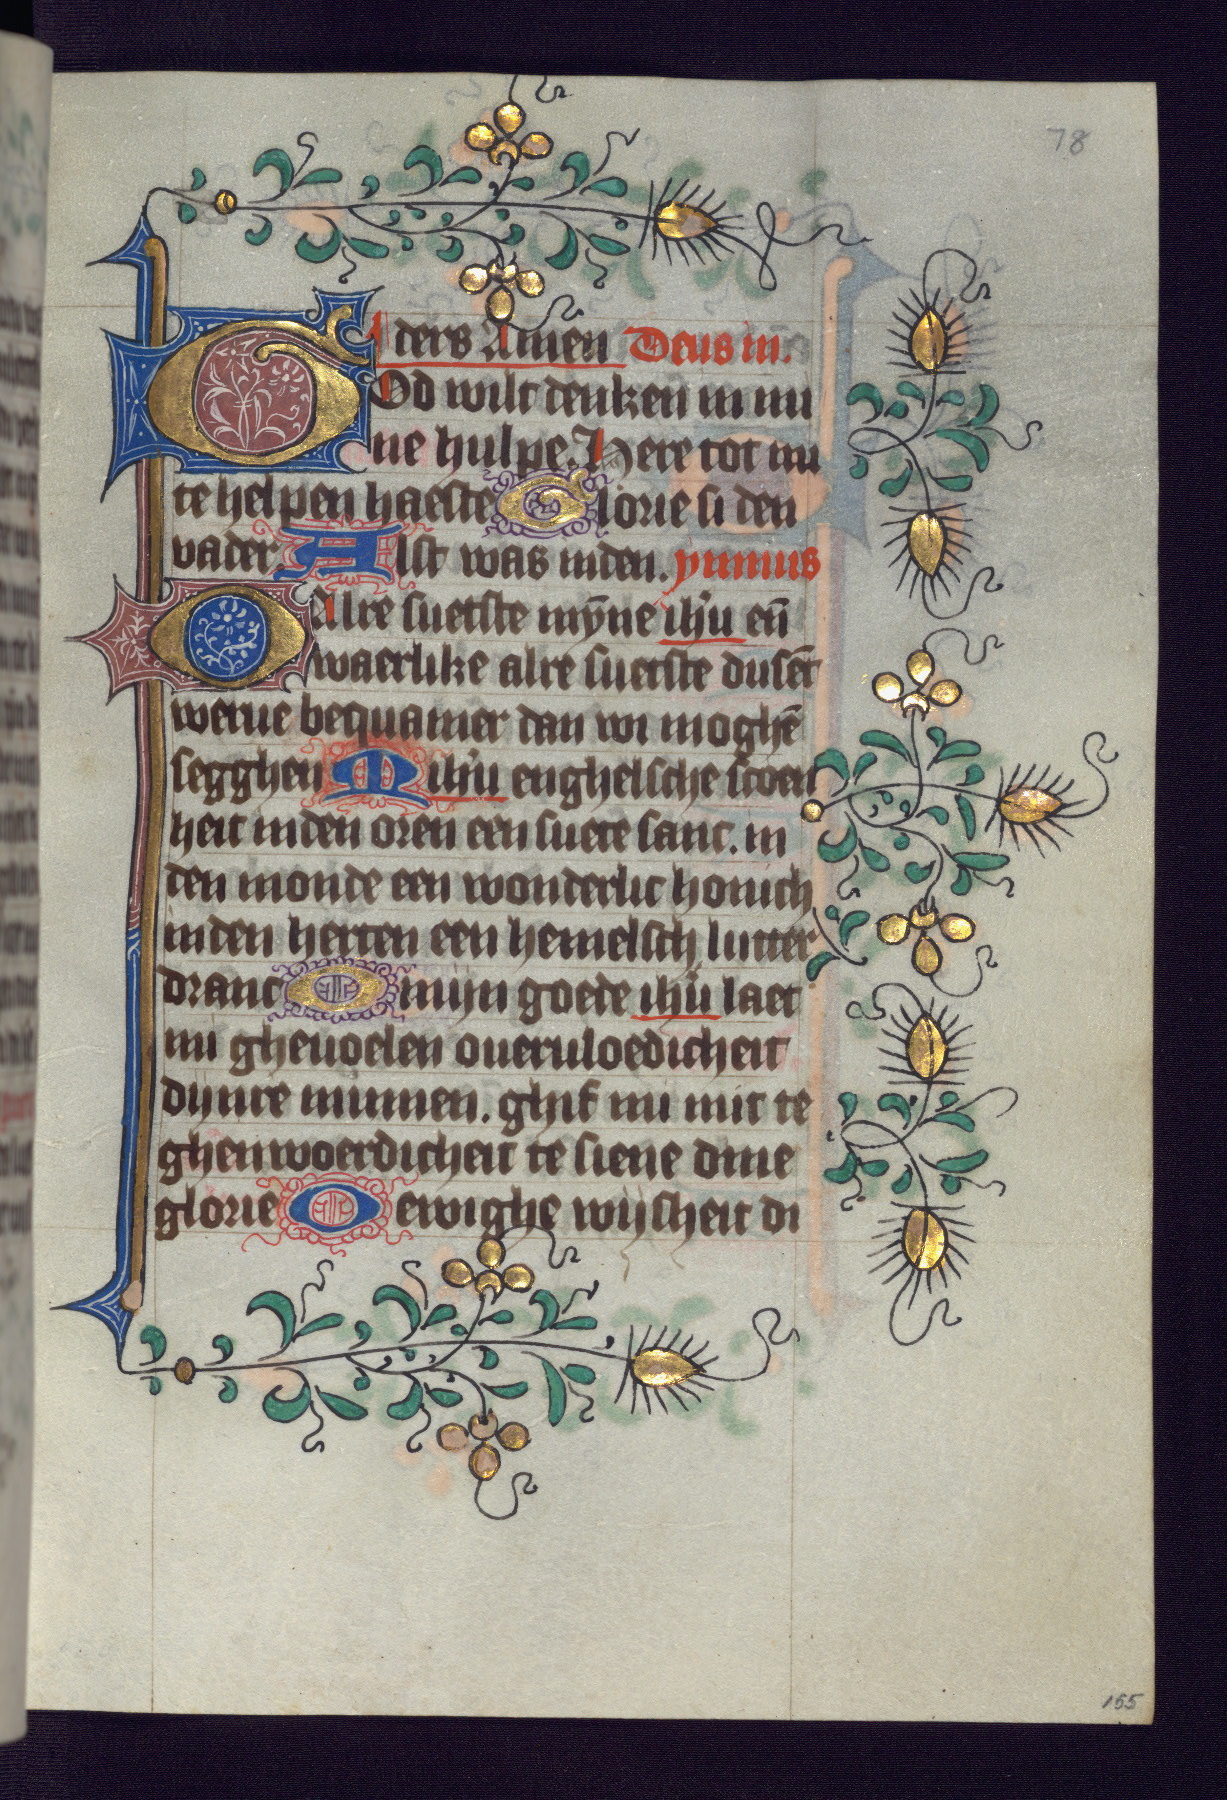 78
ders Amen Deus in.
God wilt denken in mi
ne hulpe. Here tot mi
te helpen haeste Glorie si den
vader. Alst was inden. ymnus
O Alre suetste mȳne ihū en̄
waerlike alre suetste dusēt
werue bequamer dan wi moghē
segghen M ihū enghelsche scoen
heit inden oren een suete sanc. in
den monde een wonderlic honich
inden herten een hemelsch lutter
dranc O mijn goede ihū laet
mi gheuoelen oueruloedicheit
dijnre minnen. ghif mi mit te
ghenwoerdicheit te siene dine
glorie O ewighe wijsheit di
155